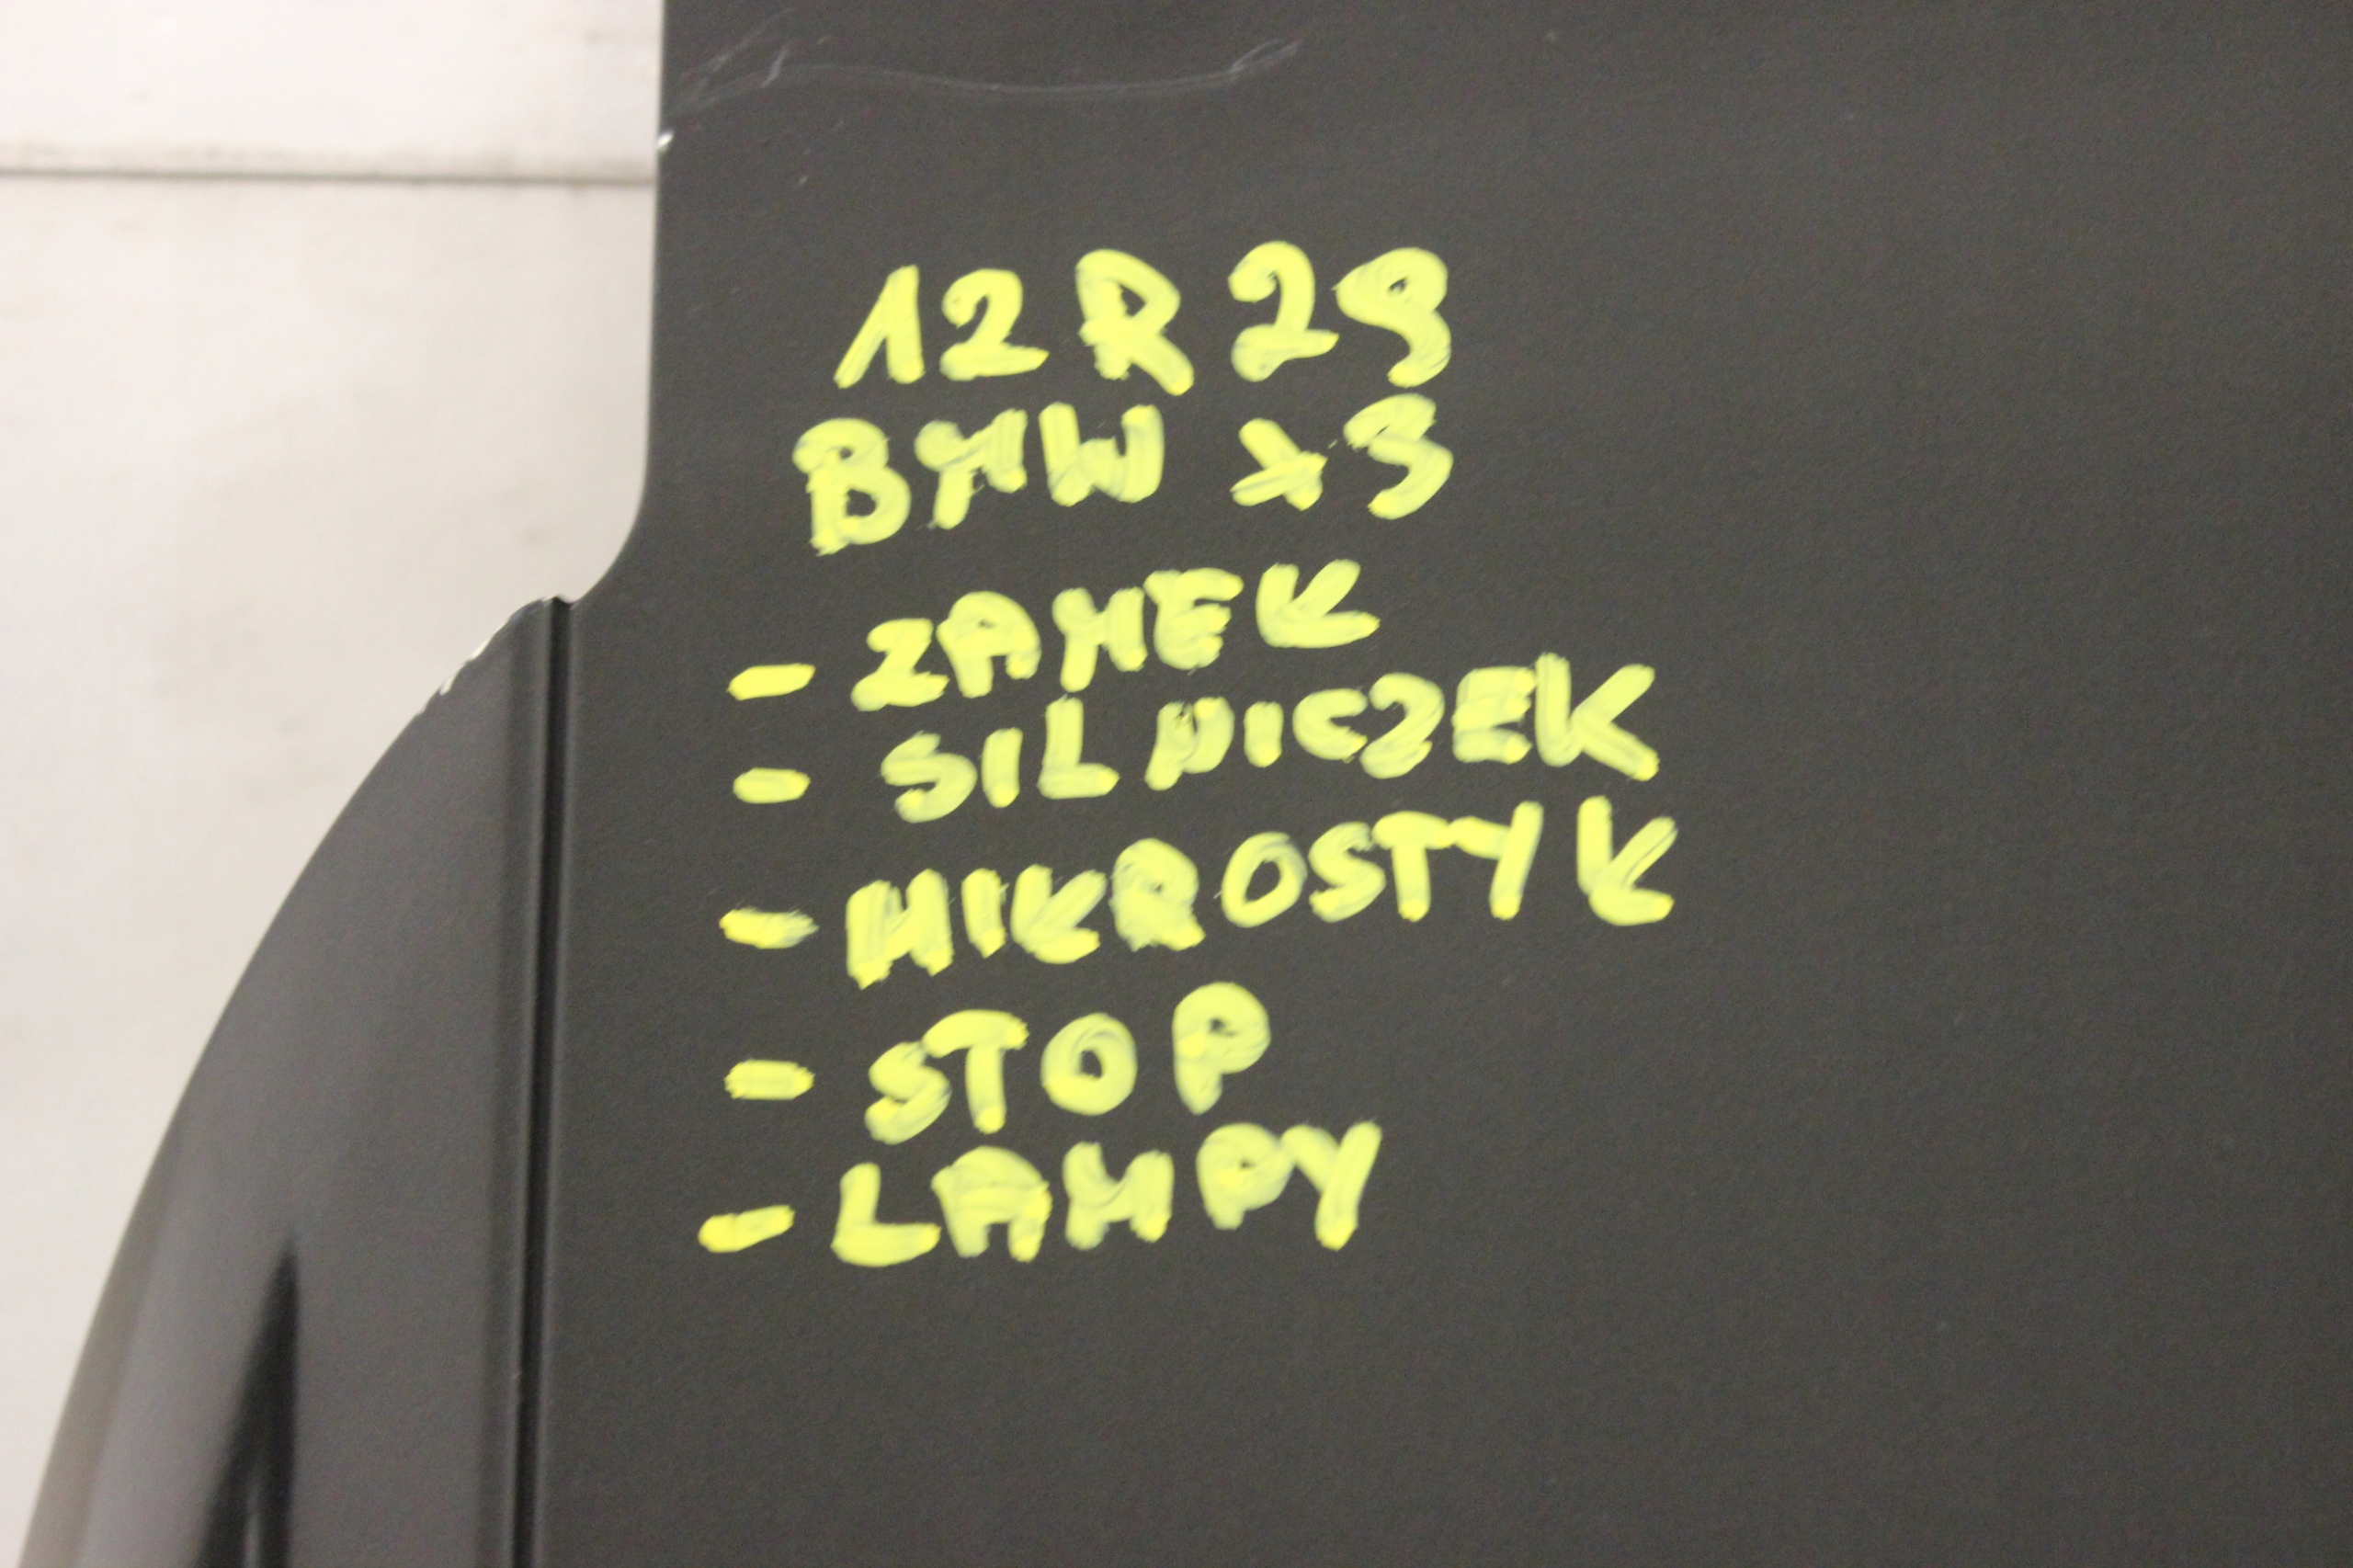 12R29
BMW X3
- ZAMEK
- SILNICZEK
- MIKROSTYK
- STOP
- LAMPY